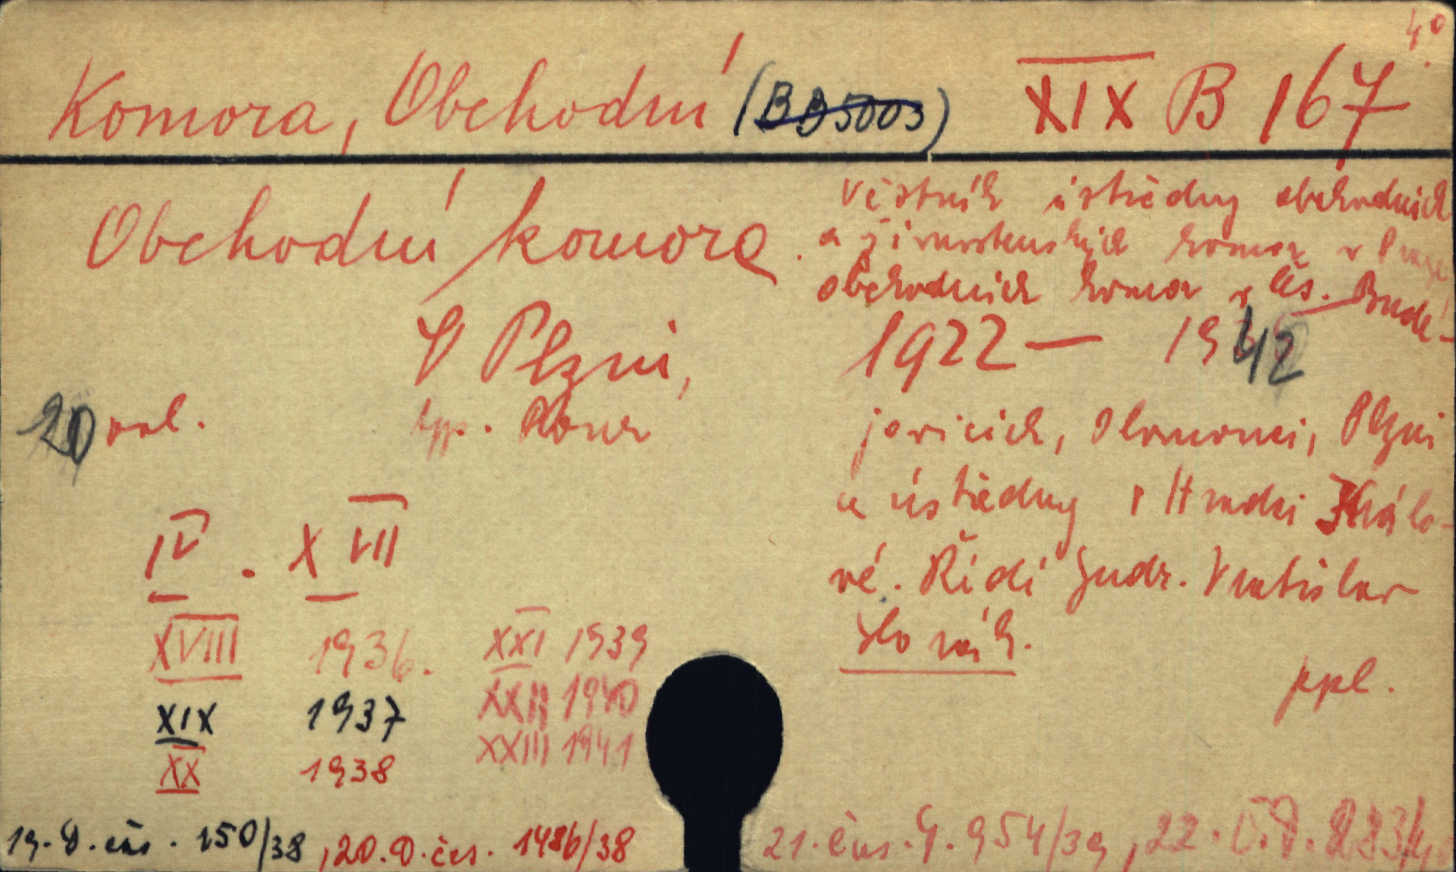 4°
Komora, Obchodní (BB5003) XIX B 167
Obchodní komora.
Věstník ústředny obchodních
a živnostenských komor v Praze
obchodních komor v Čs. Budě-
V Plzni,
1922 — 1942
20 vol.
jovicích, Olomouci, Plzni
a ústředny v Hradci Králo-
vé. Řídí Judr. Vratislav
IV. XVII
XVIII 1936. XXI 1939
XIX 1937 XXII 1940
XX 1938 XXIII 1941
ppl.
19. D. čís. 150/38, 20. D. čís. 1486/38 21. čís. 954/39, 22.